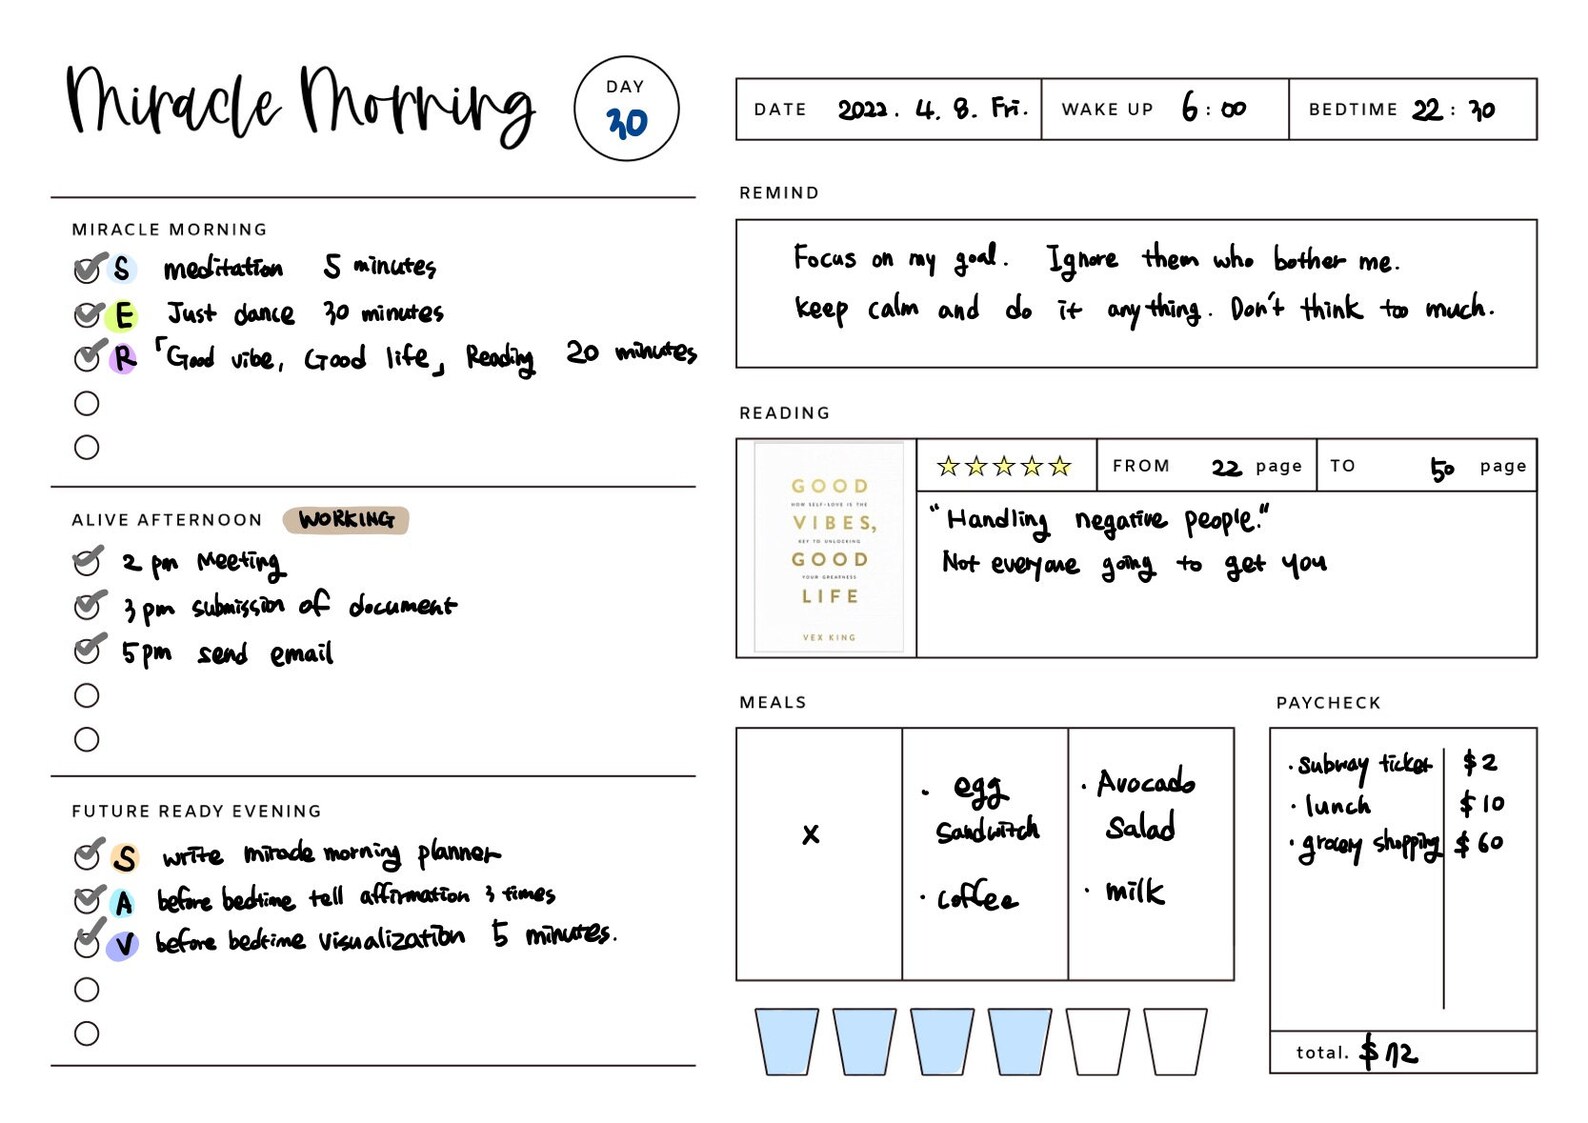 Miracle Morning
DAY
30
MIRACLE MORNING
S meditation 5 minutes
E Just dance 30 minutes
R 「Good vibe, Good life」 Reading 20 minutes
ALIVE AFTERNOON WORKING
2 pm Meeting
3 pm submission of document
5 pm send email
FUTURE READY EVENING
S write miracle morning planner
A before bedtime tell affirmation 3 times
V before bedtime visualization 5 minutes.
DATE 2022. 4. 8. Fri. WAKE UP 6 : 00 BEDTIME 22 : 30
REMIND
Focus on my goal. Ignore them who bother me.
keep calm and do it anything. Don't think too much.
READING
GOOD
HOW SELF-LOVE IS THE
VIBES,
KEY TO UNLOCKING
GOOD
YOUR GREATNESS
LIFE
VEX KING
FROM 22 page TO 50 page
"Handling negative people."
Not everyone going to get you
MEALS
X
· egg
sandwitch
· coffee
· Avocado
Salad
· milk
PAYCHECK
· subway ticket $2
· lunch $10
· grocery shopping $60
total. $72